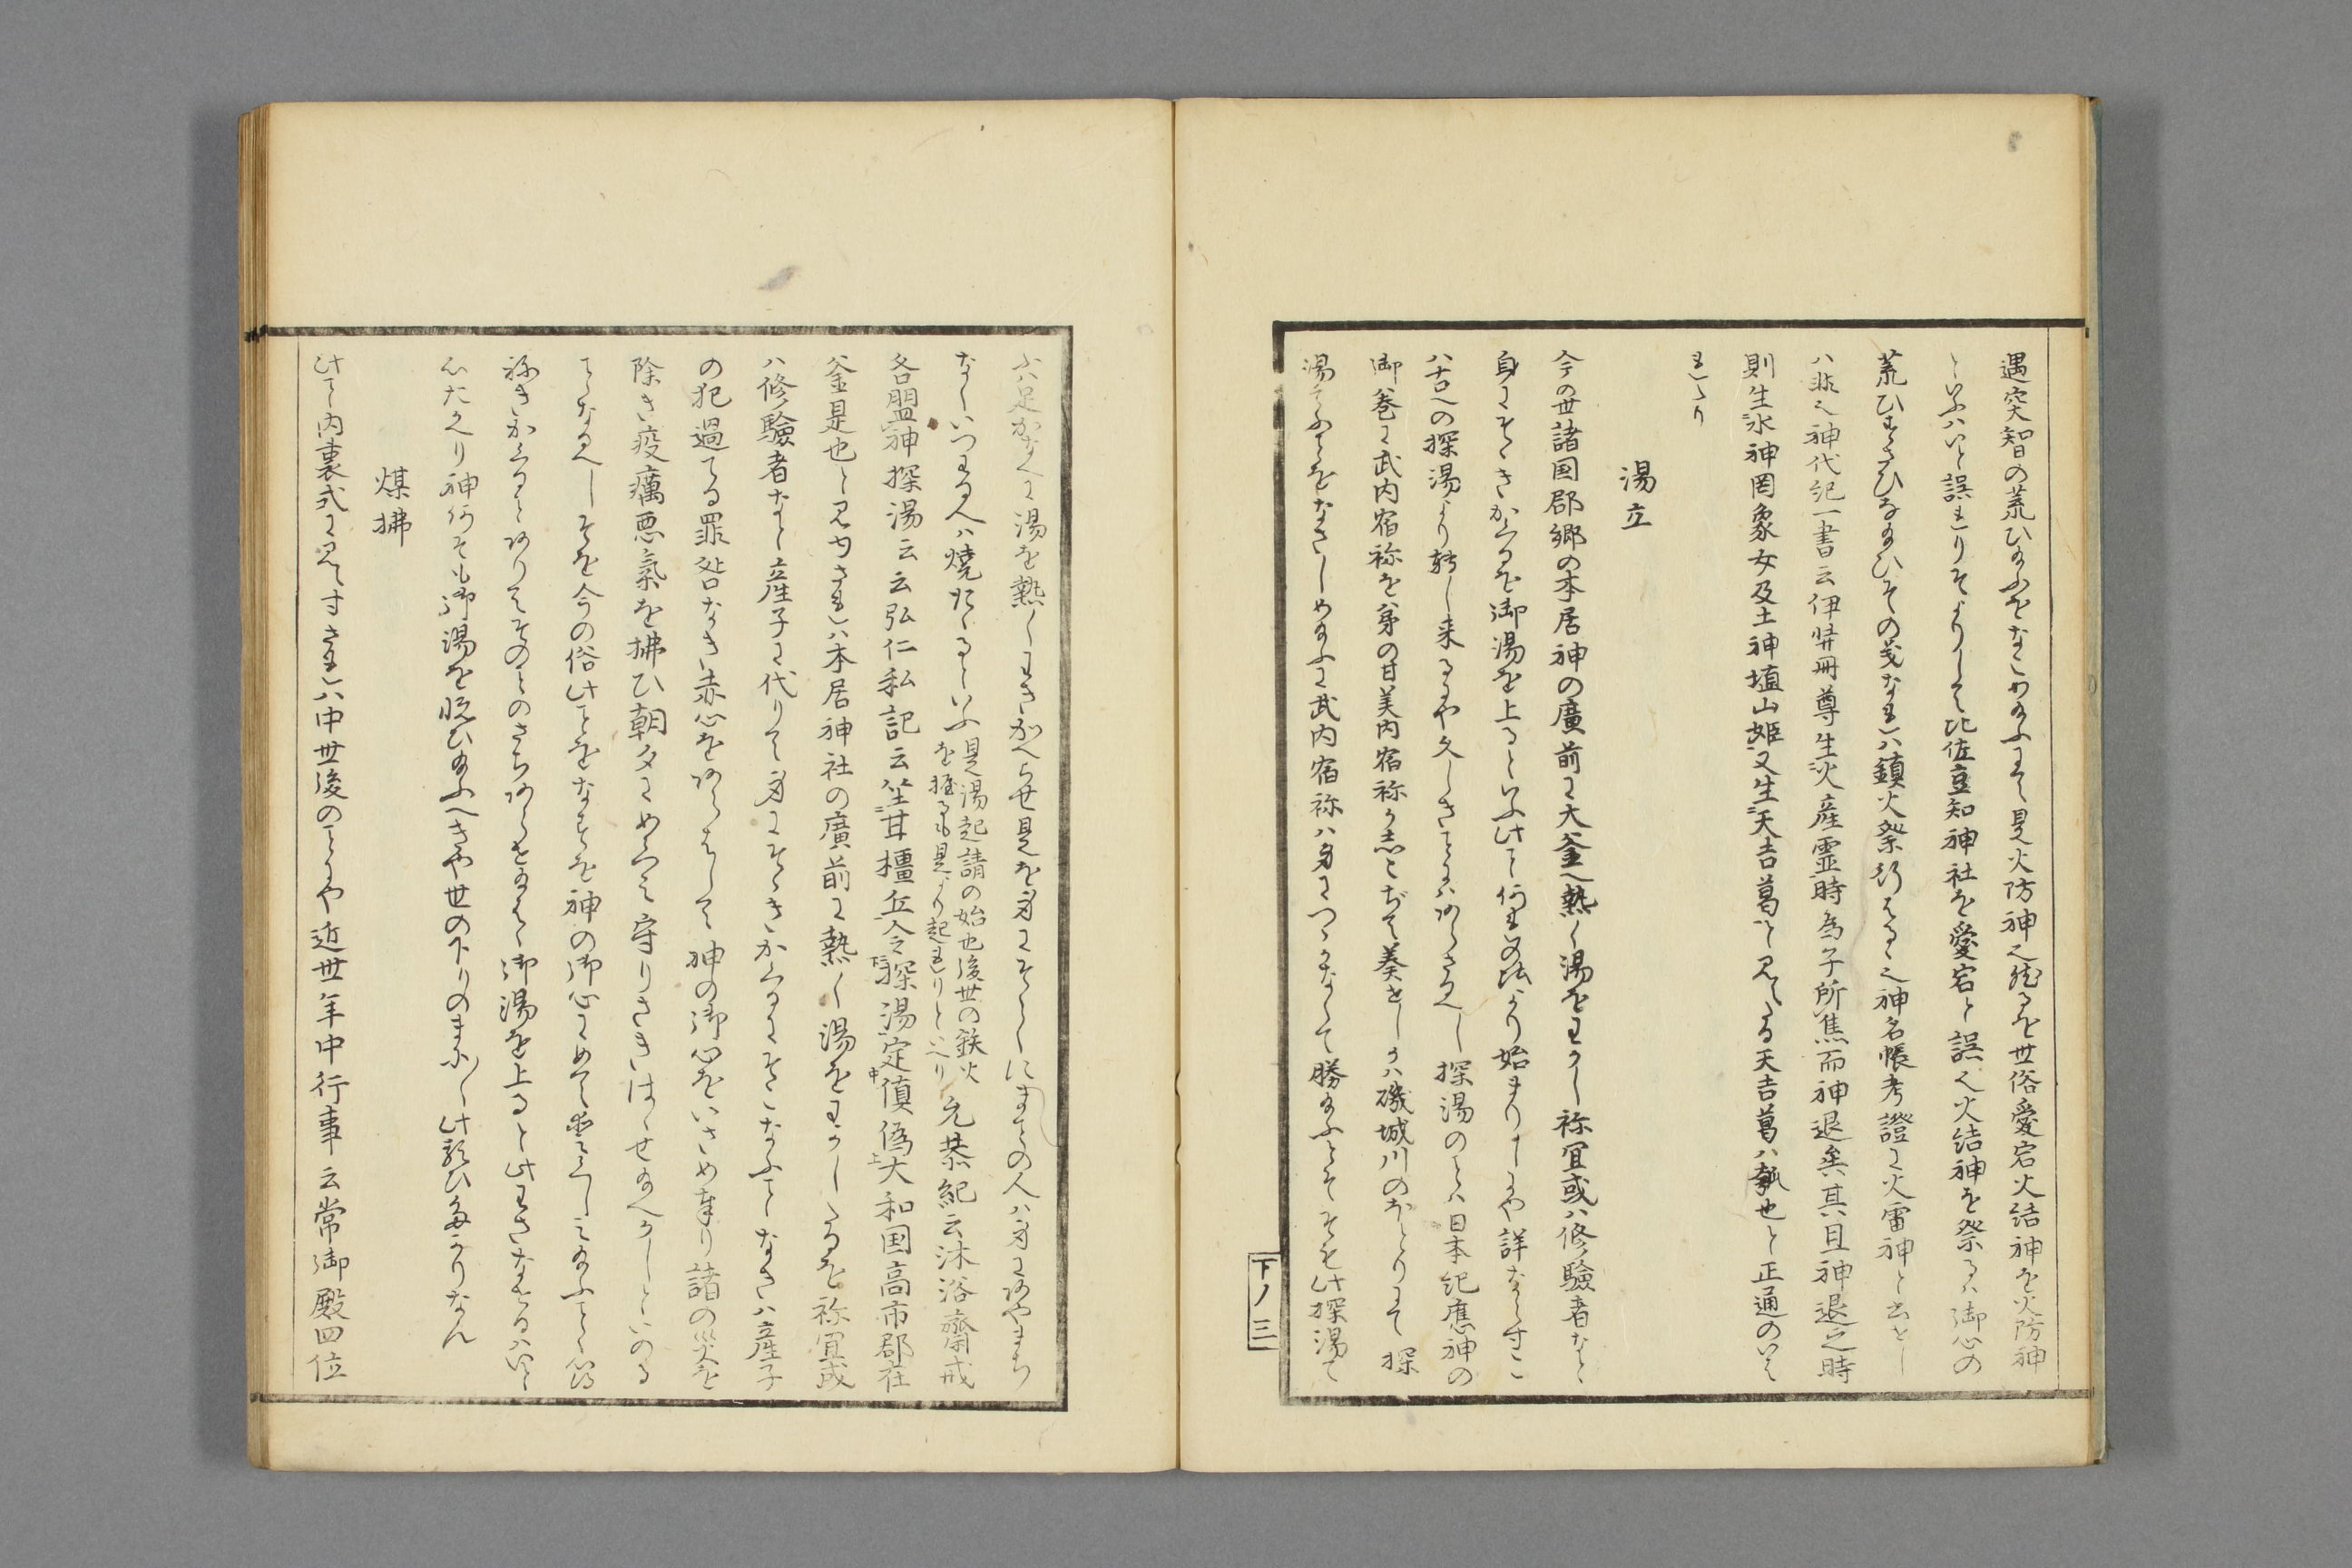 遇突智の荒ひ給ふをなこめ給ふわさ是火防神也然るを世俗愛宕火結神を火防神
といふハいと誤れりそよりして比佐豆知神社を愛宕と誤て火結神を祭るハ御心の
荒ひすさひ給ひその義なれハ鎮火祭行はるゝ也神名帳考證に火雷神と云とし
ハ非也神代紀一書云伊弉冊尊生火産霊時為子所焦而神退矣其且神退之時
則生水神罔象女及土神埴山姫又生天吉葛と見えたる天吉葛ハ瓠也と正通のいは
れたり
湯立
今の世諸国郡郷の本居神の廣前に大釜へ熱く湯をわかし祢宜或ハ修驗者なと
身にそゝきかくるを御湯を上るといふ此事何れの比より始まりましにや詳ならすこ
ハ古への探湯より轉し来るにや久しきことにハあらさるへし探湯のことハ日本紀應神の
御巻に武内宿祢を弟の甘美内宿祢か志こぢて奏せしかハ磯城川のほとりにて探
湯といふことをなさしめ給ふに武内宿祢ハ身につゝかなくて勝給ふことそもそも此探湯て
下ノ三
ふハ足かなへに湯を熱くわきかへらせ是を身にそゝくにまことの人ハ身にあやまち
なくいつわる人ハ燒たゝるといふ是湯起請の始也後世の鉄火を握るも是より起れりといへり允恭紀云沐浴齋戒
各盟神探湯云云弘仁私記云坐甘橿丘令探湯定真偽大和国高市郡在
釜是也と見ゆされハ本居神社の廣前に熱く湯をわかしたるを祢宜或
ハ修驗者なと産子に代りて身にそゝきかくるにそこなふことなきハ産子
の犯過てる罪咎なき赤心をあらはして神の御心をいさめ奉り諸の災を
除き疫癘悪氣を拂ひ朝夕にめくみ守りさきはゝせ給へかしといのる
ことなるへしそを今の俗此ことをなすを神の御心にめて楽しみ給ふことゝ心得
祢きかくることありてそのことのさちあらせ給はゝ御湯を上ると此わさなせるハいと
心たかへり神何そも御湯を悦ひ給ふへきや世の下りのまに〳〵此類ひ多かりなん
煤拂
此事内裏式に見えすされハ中世後のことにや近世年中行事云常御殿四位